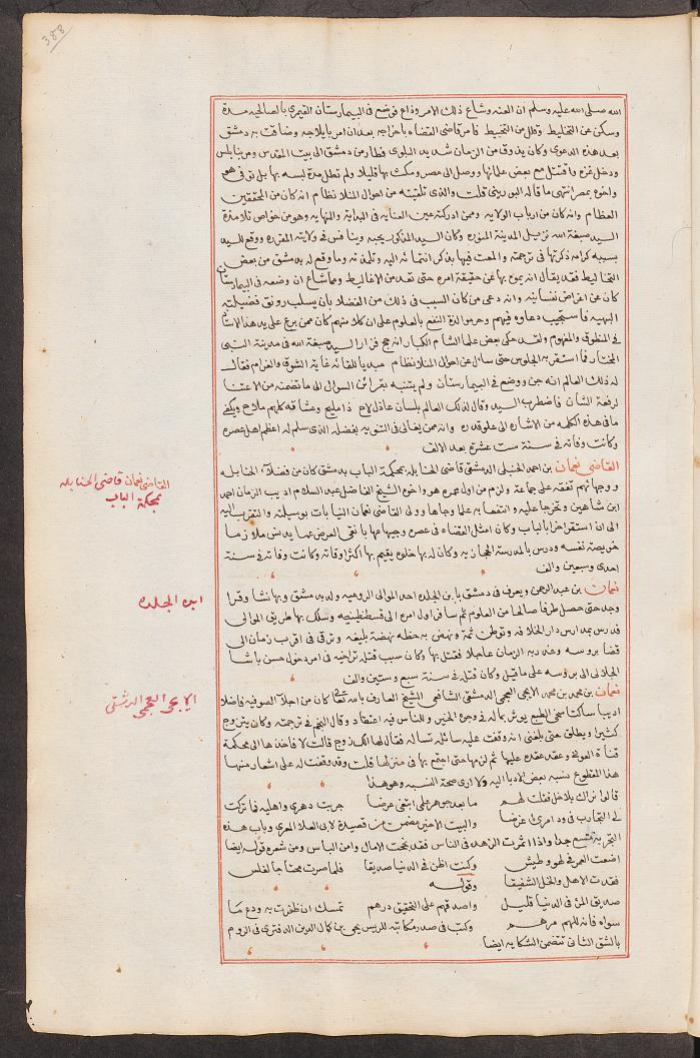 388
الله صلى الله عليه وسلم ان العنه وشاع ذلك الامر وذاع فوضع فى البيمارستان القيمرى بالصالحيه مدة
وسكن عن التخليط وقلل من التخبيط فامر قاضى القضاء باخراجه بعد ان امر بايلاجه وضاقت به دمشق
بعد هذه الدعوى وكان يذوق من الزمان شديد البلوى فطار من دمشق الى بيت المقدس ومر بنابلس
ودخل غزة واقتتل مع بعض علمائها ووصل الى مصر ومكث بها قليلا ولم تطل مدة لبسه بها بل توفى هو
واخوه بمصر انتهى ما قاله البورينى قلت والذى تلقيته من احوال المنلا نظام انه كان من المحققين
العظام وانه كان من ارباب الولايه وممن ادركته عين العنايه فى البداية والنهايه وهو من خواص تلامذة
السيد صبغة الله نزيل المدينة المنوره وكان السيد المذكور يحبه وينافس فى ولايته المقرره ووقع للسيد
بسببه كرامه ذكرتها فى ترجمته والمعت فيها بذكر انتمائه اليه وتلمذته وما وقع له بدمشق من بعض
التخاليط فقد يقال انه يموه بها عن حقيقة امره حتى تعد من الاغاليط ومما شاع ان وضعه فى البيمارستان
كان عن اغراض نفسانيه وانه دعى من كان السبب فى ذلك من الفضلا بان يسلب رونق فضيلته
البهيه فاستجيب دعاوه فيهم وحرموا لذة النفع بالعلوم على ان كلا منهم كان ممن برع على يد هذا الاستاذ
فى المنطوق والمفهوم ولقد حكى بعض علما الشام الكبار انه حج فزار السيد صبغة الله فى مدينة النبى
المختار فاستقر به الجلوس حتى ساله عن احوال المنلا نظام مبديا للقائه غاية الشوق والغرام فقال
له ذلك العالم انه جن ووضع فى البيمارستان ولم يتنبه بقرائن السوال الى ما تضمنه من الاعتنا
لرفعة الشان فاضطرب السيد وقال لذلك العالم بلسان عاذل لاح ذا مليح وعشاقه كلهم ملاح ويكفى
ما فى هذه الكلمه من الاشاره الى علو قدره وانه ممن يغالى فى التنويه بفضله الذى سلم له اعظم اهل عصره
وكانت وفاته فى سنة ست عشرة بعد الالف
القاضى نعمان بن احمد الحنبلى الدمشقى قاضى الحنابله بمحكمة الباب بدمشق كان من فضلآء الحنابله
ووجهائهم تفقه على جماعة ولزم من اول عمره هو واخوه الشيخ الفاضل عبد السلام اديب الزمان احمد
ابن شاهين وتخرجا عليه وانتفعا به علما وجاها وولى القاضى نعمان النيابات بوسيلته والتقرب اليه
الى ان استقر اخرا بالباب وكان امثل القضاة فى عصره وجيها مهابا نقى العرض عما يدنس ملازما
خويصة نفسه ودرس بالمدرسة الحجازيه وكان له بها خلوه يقيم بها اكثر اوقاته وكانت وفاته فى سنة
احدى وسبعين والف
القاضى نعمان قاضى الحنابله
بمحكمة الباب
نعمان بن عبد الرحمن ويعرف فى دمشق بابن الجلده احد الموالى الروميه ولد بدمشق وبها نشا وقرا
وجد حتى حصل طرفا صالحا من العلوم ثم سافر اول امره الى قسطنطينيه وسلك بها طريق الموالى
فدرس بمدارس دار الخلافه وتوطن ثمة ونهض به حظه نهضة بليغه وترقى فى اقرب زمان الى
قضا بروسه وغدر به الزمان عاجلا فقتل بها وكان سبب قتله تراخيه فى امر دخول حسن باشا
الجلالى الى بروسه على ما قيل وكان قتله فى سنة سبع وستين والف
ابن الجلده
نعمان بن محمد بن محمد الايجى العجمى الدمشقى الشافعى الشيخ العارف بالله تعالى كان من اجلآء الصوفيه فاضلا
اديبا ساكنا سخى الطبع يوثر بماله فى وجوه الخير وللناس فيه اعتقاد وقال النجم فى ترجمته وكان يتزوج
كثيرا ويطلق حتى بلغنى انه وقفت عليه سائله تساله فقال لها الك زوج قالت لا فاخذها الى محكمة
قناة العونى وعقد عقده عليها ثم لزمها حتى اجتمع بها فى منزلها قلت وقد وقفت له على اشعار منها
هذا المقطوع نسبه بعض الادبا اليه ولا ارى صحة النسبه وهو هذا
الايجى العجمى الدمشقى
قالوا نراك بلا خل فقلت لهم ما بعد جوهر خلى ابتغى عرضا جربت دهرى واهليه فما تركت
لى التجارب فى ود امرئ غرضا والبيت الاخير مضمن من قصيدة لابى العلا المعرى وباب هذه
التجربه متسع جدا واذا اثمرت الزهد فى الناس فقد نجحت الامال وامن الباس ومن شعره قوله ايضا
اضعت العمر فى لهو وطيش وكنت اظن فى الدنيا صديقا فلما صرت محتاجا لفلس
فقدت الاهل والخل الشفيقا وقوله
صديق المرء فى الدنيا قليل واصدقهم على التحقيق درهم تمسك ان ظفرت به ودع ما
سواه فانه للهم مرهم وكتب فى صدر مكاتبة للرييس يحيى بن كمال الدين الدفترى فى الروم
بالشق الثانى تتضمن الشكايه ايضا